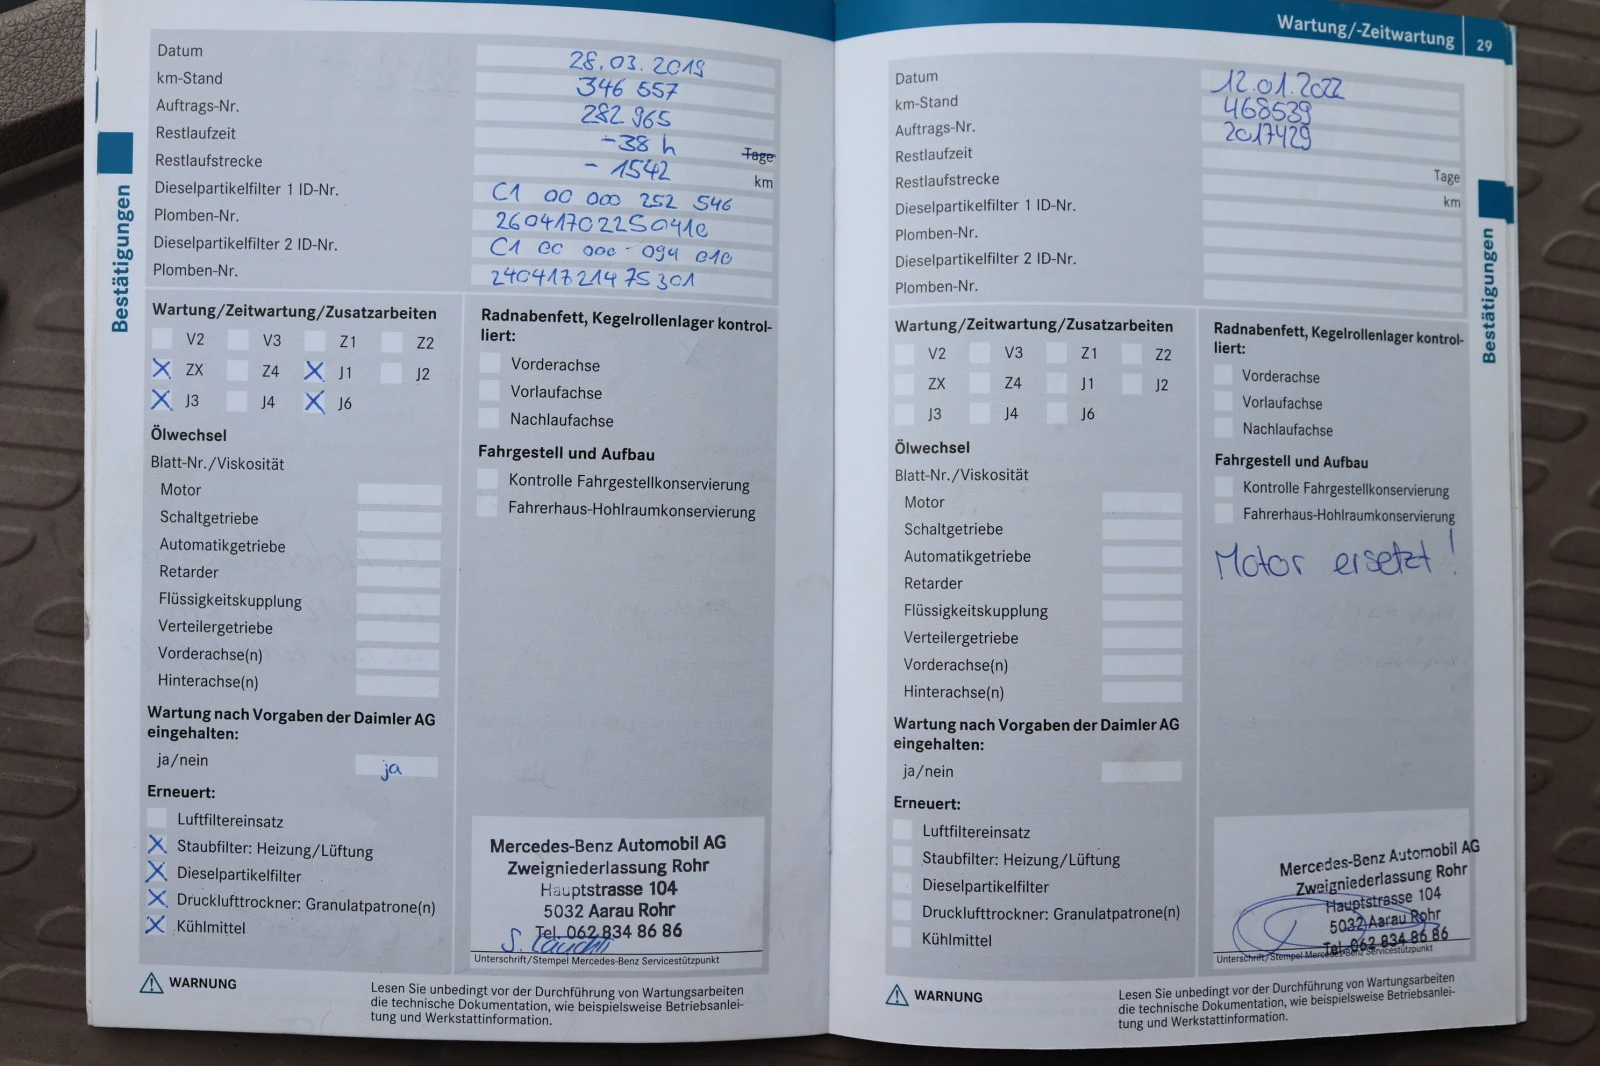 Datum 28.03.2019
km-Stand 346 557
Auftrags-Nr. 282 965
Restlaufzeit -38 h Tage
Restlaufstrecke - 1542 km
Dieselpartikelfilter 1 ID-Nr. C1 00 000 252 546
Plomben-Nr.
Dieselpartikelfilter 2 ID-Nr. C1 00 000 - 094 010
Plomben-Nr.
Bestätigungen
Wartung/Zeitwartung/Zusatzarbeiten
V2 V3 Z1 Z2
X ZX Z4 X J1 J2
X J3 J4 X J6
Ölwechsel
Blatt-Nr./Viskosität
Motor
Schaltgetriebe
Automatikgetriebe
Retarder
Flüssigkeitskupplung
Verteilergetriebe
Vorderachse(n)
Hinterachse(n)
Wartung nach Vorgaben der Daimler AG
eingehalten:
ja/nein ja
Erneuert:
Luftfiltereinsatz
X Staubfilter: Heizung/Lüftung
X Dieselpartikelfilter
X Drucklufttrockner: Granulatpatrone(n)
X Kühlmittel
Radnabenfett, Kegelrollenlager kontrol-
liert:
Vorderachse
Vorlaufachse
Nachlaufachse
Fahrgestell und Aufbau
Kontrolle Fahrgestellkonservierung
Fahrerhaus-Hohlraumkonservierung
Mercedes-Benz Automobil AG
Zweigniederlassung Rohr
Hauptstrasse 104
5032 Aarau Rohr
Tel. 062 834 86 86
Unterschrift/Stempel Mercedes-Benz Servicestützpunkt
WARNUNG
Lesen Sie unbedingt vor der Durchführung von Wartungsarbeiten
die technische Dokumentation, wie beispielsweise Betriebsanlei-
tung und Werkstattinformation.
Wartung/-Zeitwartung 29
Datum 12.01.2022
km-Stand 468539
Auftrags-Nr. 2017429
Restlaufzeit Tage
Restlaufstrecke km
Dieselpartikelfilter 1 ID-Nr.
Plomben-Nr.
Dieselpartikelfilter 2 ID-Nr.
Plomben-Nr.
Bestätigungen
Wartung/Zeitwartung/Zusatzarbeiten
V2 V3 Z1 Z2
ZX Z4 J1 J2
J3 J4 J6
Ölwechsel
Blatt-Nr./Viskosität
Motor
Schaltgetriebe
Automatikgetriebe
Retarder
Flüssigkeitskupplung
Verteilergetriebe
Vorderachse(n)
Hinterachse(n)
Wartung nach Vorgaben der Daimler AG
eingehalten:
ja/nein
Erneuert:
Luftfiltereinsatz
Staubfilter: Heizung/Lüftung
Dieselpartikelfilter
Drucklufttrockner: Granulatpatrone(n)
Kühlmittel
Radnabenfett, Kegelrollenlager kontrol-
liert:
Vorderachse
Vorlaufachse
Nachlaufachse
Fahrgestell und Aufbau
Kontrolle Fahrgestellkonservierung
Fahrerhaus-Hohlraumkonservierung
Motor ersetzt!
Mercedes-Benz Automobil AG
Zweigniederlassung Rohr
Hauptstrasse 104
5032 Aarau Rohr
Tel. 062 834 86 86
Unterschrift/Stempel Mercedes-Benz Servicestützpunkt
WARNUNG
Lesen Sie unbedingt vor der Durchführung von Wartungsarbeiten
die technische Dokumentation, wie beispielsweise Betriebsanlei-
tung und Werkstattinformation.